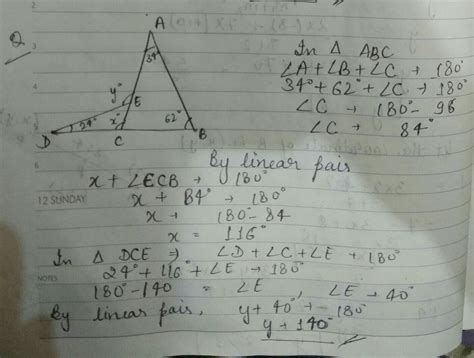 Q
A
34°
y°
E
24°
x°
62°
D
C
B
In Δ ABC
∠A+∠B+∠C → 180°
34°+62°+∠C → 180°
∠C → 180°-96
∠C → 84°
By linear pairs
x + ∠ECB → 180°
12 SUNDAY
x + 84° → 180°
x → 180-84
x = 116°
In Δ DCE ⇒ ∠D+∠C+∠E → 180°
NOTES
24°+116°+∠E → 180°
180-140 = ∠E, ∠E → 40°
By linear pairs, y+40° → 180°
y → 140°